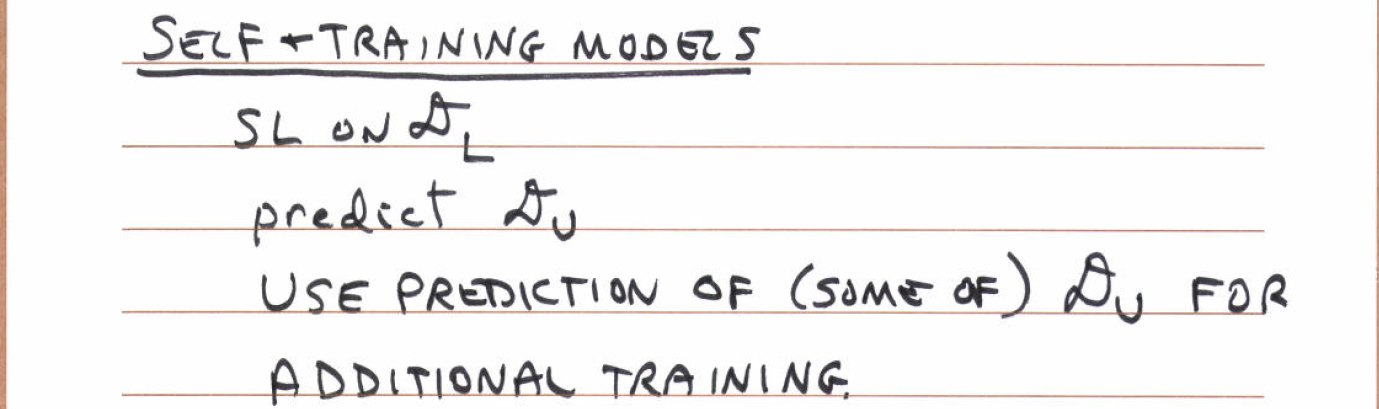 SELF-TRAINING MODELS
SL ON 𝒟_L
predict 𝒟_U
USE PREDICTION OF (SOME OF) 𝒟_U FOR
ADDITIONAL TRAINING.